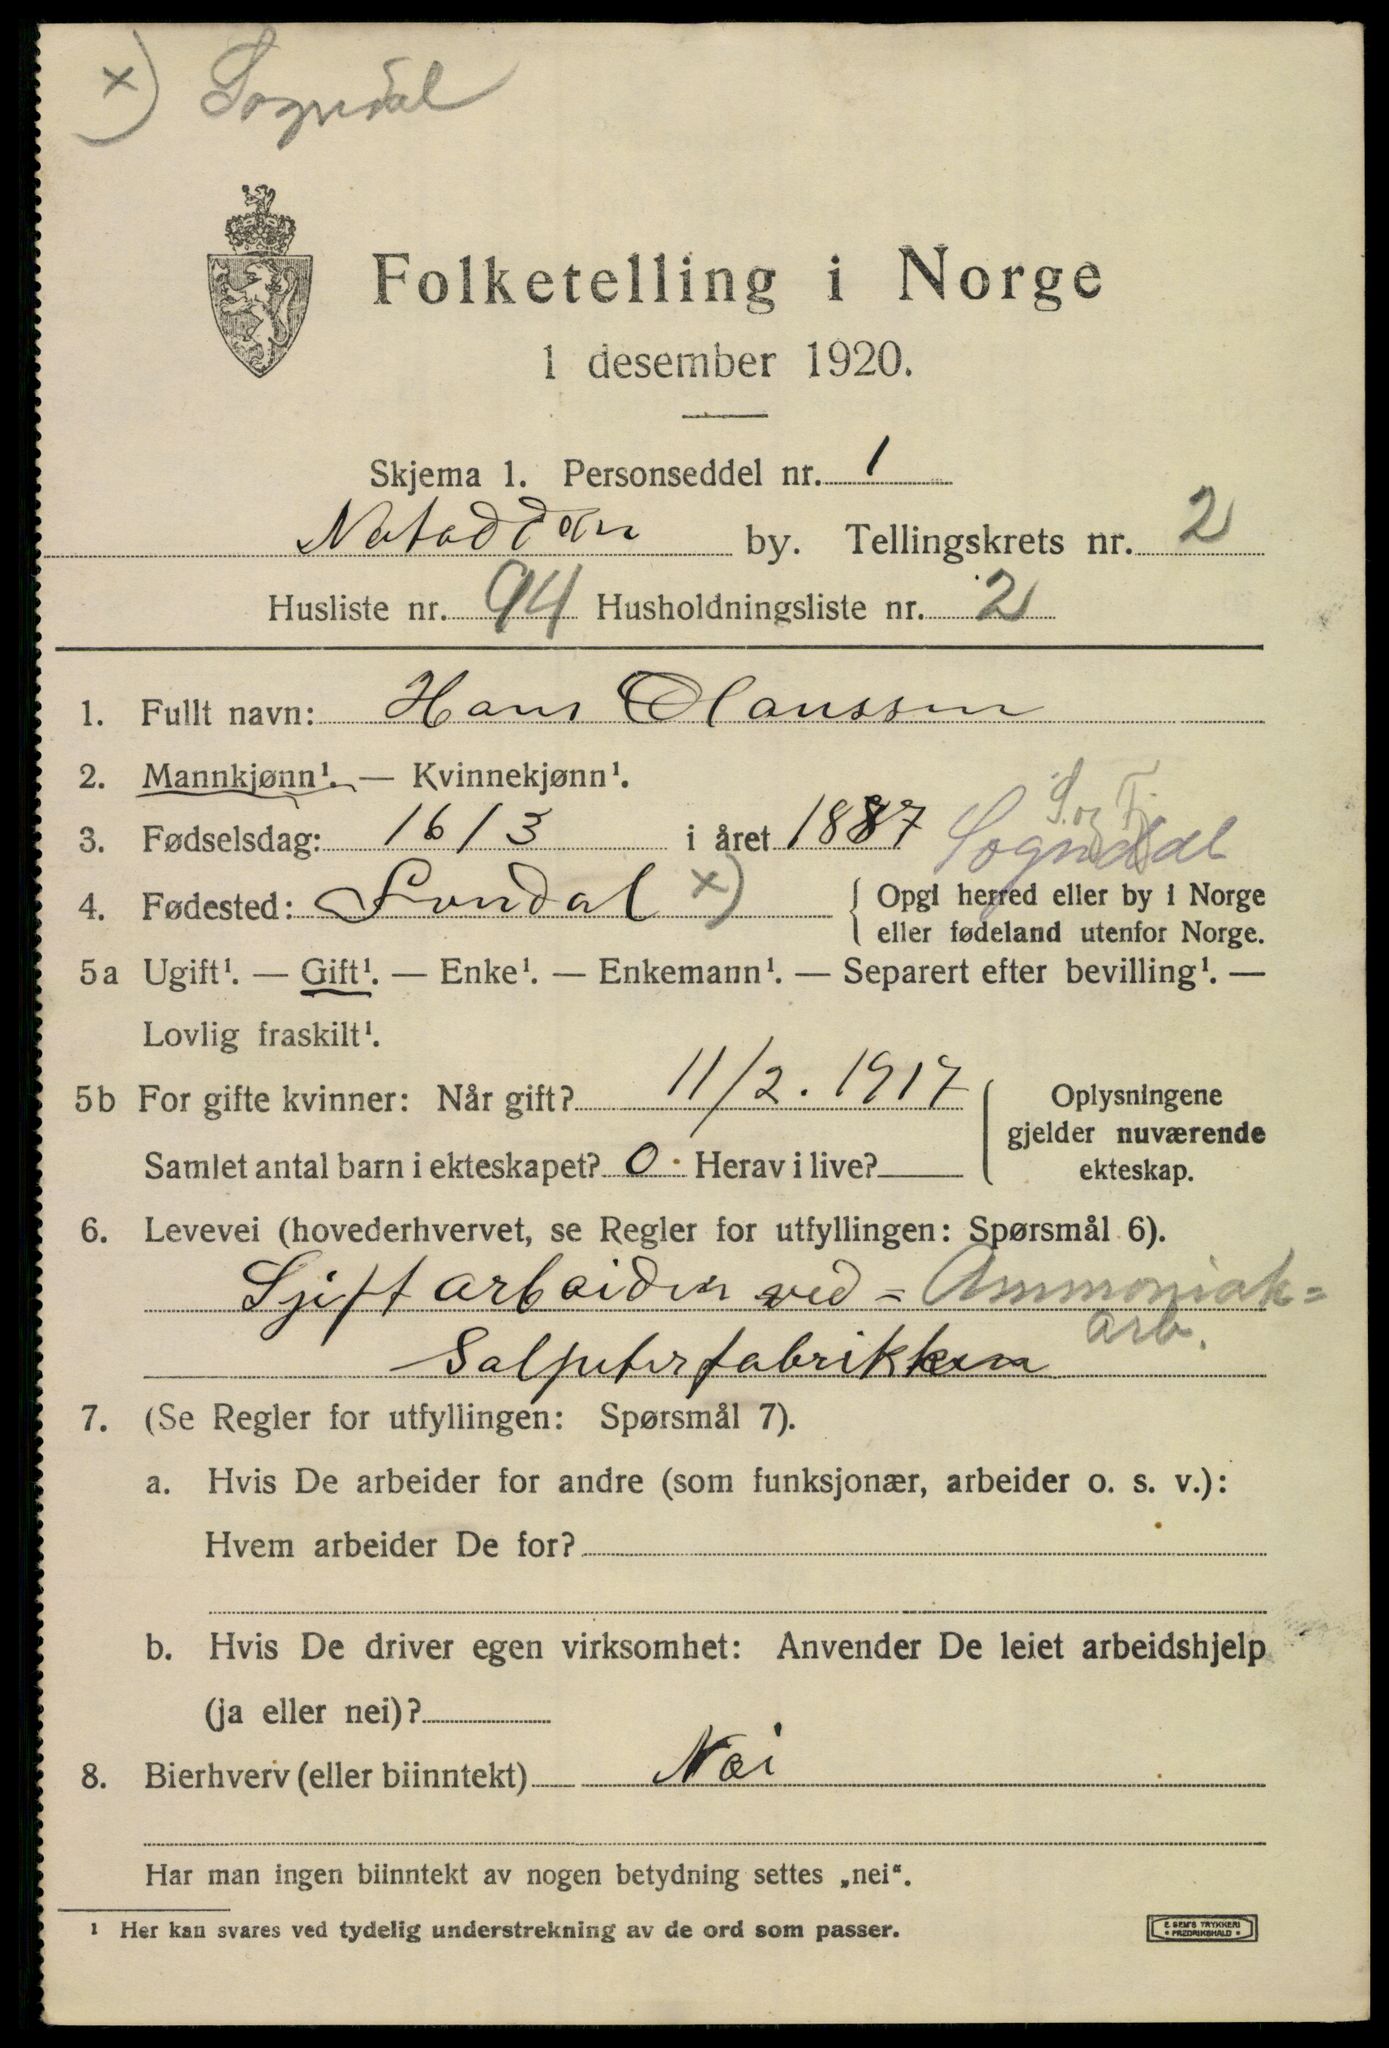 x) Sogndal
Folketelling i Norge
1 desember 1920.
Skjema 1. Personseddel nr. 1
Notodden by. Tellingskrets nr. 2
Husliste nr. 94 Husholdningsliste nr. 2
1. Fullt navn: Hans Clanssen
2. Mannkjønn¹. — Kvinnekjønn¹.
S. og Fj.
3. Fødselsdag: 16/3 i året 1887 Sogndal
4. Fødested: Sondal x) { Opgi herred eller by i Norge
eller fødeland utenfor Norge.
5a Ugift¹. — Gift¹. — Enke¹. — Enkemann¹. — Separert efter bevilling¹. —
Lovlig fraskilt¹.
5b For gifte kvinner: Når gift? 11/2. 1917 Oplysningene
gjelder nuværende
Samlet antal barn i ekteskapet? 0. Herav i live? ekteskap.
6. Levevei (hovederhvervet, se Regler for utfyllingen: Spørsmål 6).
Sjift arbeider ved = Ammoniak=
arb.
Salpeterfabrikken
7. (Se Regler for utfyllingen: Spørsmål 7).
a. Hvis De arbeider for andre (som funksjonær, arbeider o. s. v.):
Hvem arbeider De for?
b. Hvis De driver egen virksomhet: Anvender De leiet arbeidshjelp
(ja eller nei)?
8. Bierhverv (eller biinntekt) Nei
Har man ingen biinntekt av nogen betydning settes „nei“.
¹ Her kan svares ved tydelig understrekning av de ord som passer.
E SEM'S TRYKKERI
• FREDRIKSHALD •